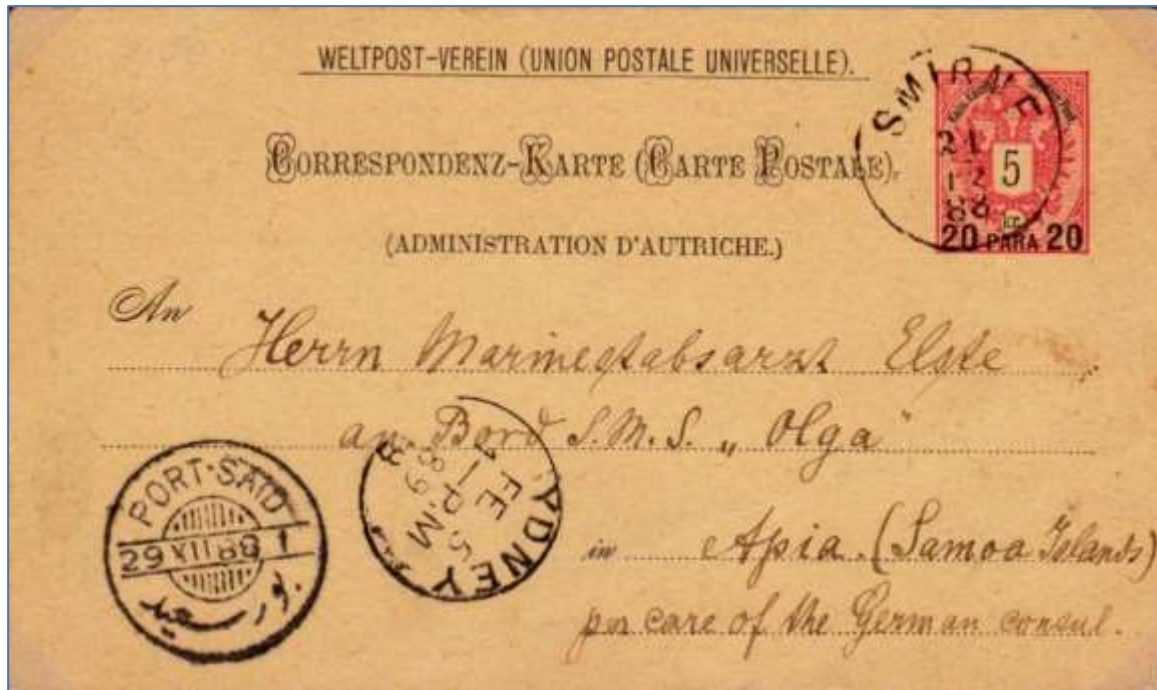 WELTPOST-VEREIN (UNION POSTALE UNIVERSELLE).
CORRESPONDENZ-KARTE (CARTE POSTALE).
(ADMINISTRATION D'AUTRICHE.)
SMIRNE
21
12
88
5
kr.
20 PARA 20
An Herrn Marinestabsarzt Elste
an Bord S.M.S. „Olga“
in Apia. (Samoa Islands)
per care of the German consul.
PORT-SAID
29 XII 88 1
بور سعيد
YDNEY
FE 5
1 P.M
89